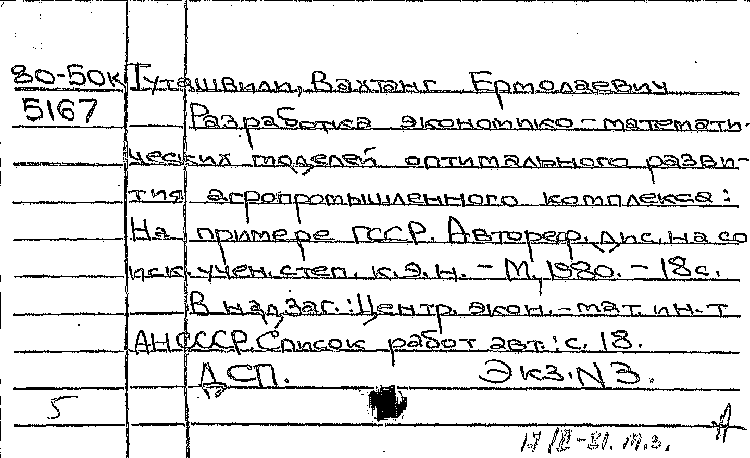 80-50к Гуташвили, Вахтанг Ермолаевич
5167 Разработка экономико-математи-
ческих моделей оптимального разви-
тия агропромышленного комплекса:
На примере ГССР. Автореф. дис. на со
иск. учен. степ. к.э.н. - М., 1980. - 18с.
В надзаг.: Центр. экон.-мат. ин-т
АН СССР. Список работ авт.: с. 18.
ДСП. Экз. N3.
5